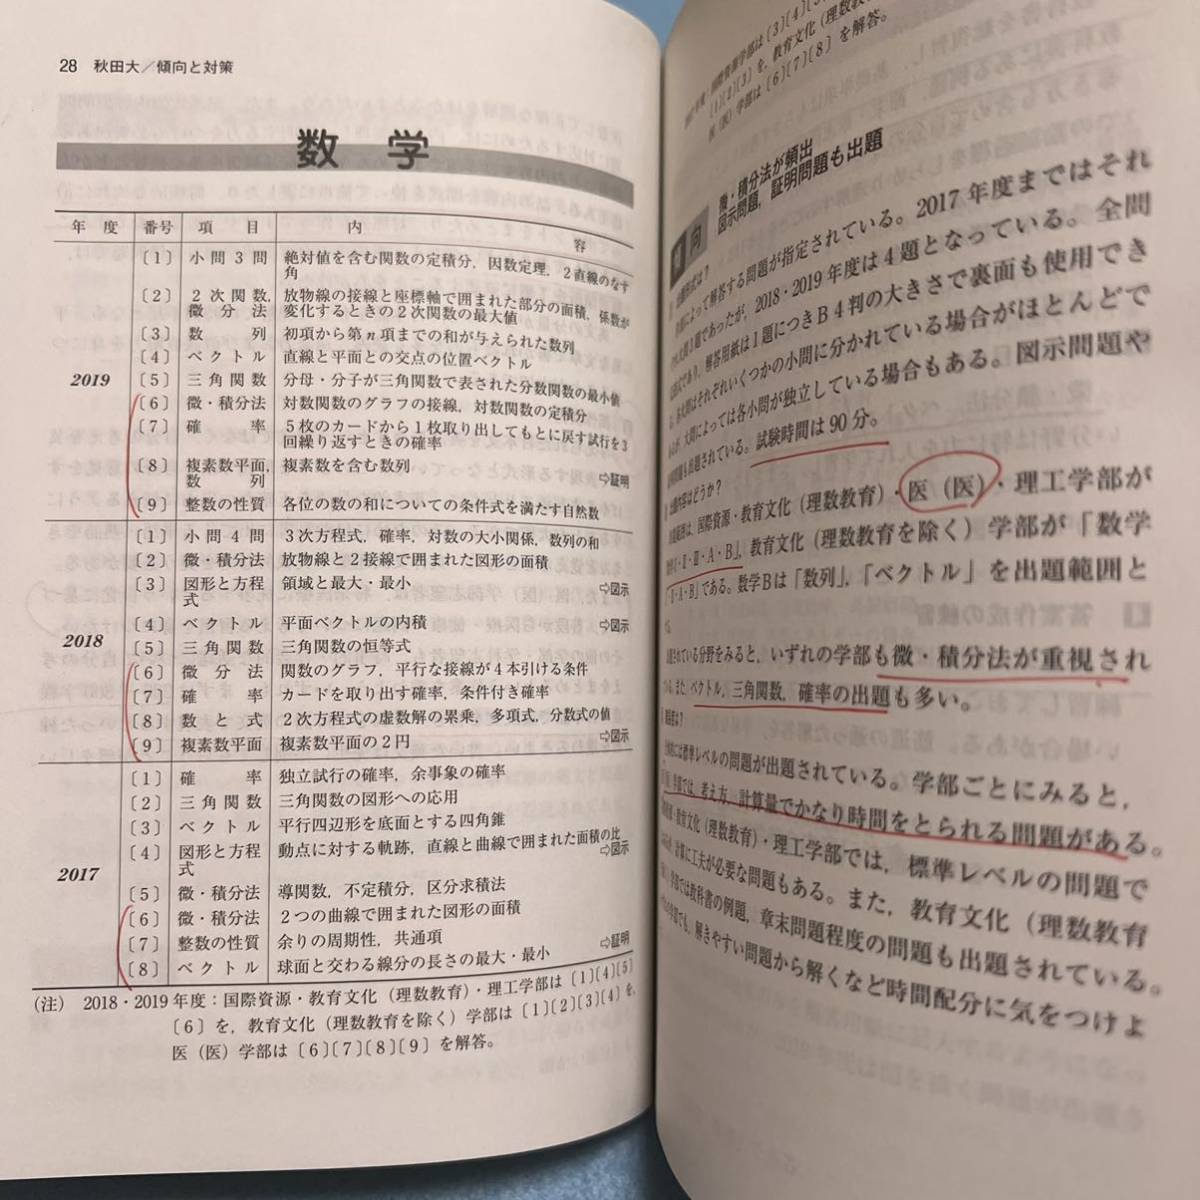 28 秋田大／傾向と対策
数 学
年 度 番号 項 目 内 容
〔1〕 小問3問 絶対値を含む関数の定積分，因数定理，2直線のなす
角
〔2〕 2次関数， 放物線の接線と座標軸で囲まれた部分の面積，係数が
微分法 変化するときの2次関数の最大値
〔3〕 数列 初項から第n項までの和が与えられた数列
〔4〕 ベクトル 直線と平面との交点の位置ベクトル
2019 〔5〕 三角関数 分母・分子が三角関数で表された分数関数の最小値
〔6〕 微・積分法 対数関数のグラフの接線，対数関数の定積分
〔7〕 確率 5枚のカードから1枚取り出してもとに戻す試行を3
回繰り返すときの確率
〔8〕 複素数平面， 複素数を含む数列 ⇨証明
数列
〔9〕 整数の性質 各位の数の和についての条件式を満たす自然数
〔1〕 小問4問 3次方程式，確率，対数の大小関係，数列の和
〔2〕 微・積分法 放物線と2接線で囲まれた図形の面積
〔3〕 図形と方程 領域と最大・最小 ⇨図示
式
〔4〕 ベクトル 平面ベクトルの内積 ⇨図示
2018 〔5〕 三角関数 三角関数の恒等式
〔6〕 微分法 関数のグラフ，平行な接線が4本引ける条件
〔7〕 確率 カードを取り出す確率，条件付き確率
〔8〕 数と式 2次方程式の虚数解の累乗，多項式，分数式の値
〔9〕 複素数平面 複素数平面の2円 ⇨図示
〔1〕 確率 独立試行の確率，余事象の確率
〔2〕 三角関数 三角関数の図形への応用
〔3〕 ベクトル 平行四辺形を底面とする四角錐
〔4〕 図形と方程 動点に対する軌跡，直線と曲線で囲まれた面積の比
式 ⇨図示
2017
〔5〕 微・積分法 導関数，不定積分，区分求積法
〔6〕 微・積分法 2つの曲線で囲まれた図形の面積
〔7〕 整数の性質 余りの周期性，共通項 ⇨証明
〔8〕 ベクトル 球面と交わる線分の長さの最大・最小
（注） 2018・2019年度：国際資源・教育文化（理数教育）・理工学部は〔1〕〔4〕〔5〕
〔6〕を，教育文化（理数教育を除く）学部は〔1〕〔2〕〔3〕〔4〕を，
医（医）学部は〔6〕〔7〕〔8〕〔9〕を解答。
〔1〕〔2〕〔3〕を，教育文化（理数教
医（医）学部は〔6〕〔7〕〔8〕を解答。
向
微・積分法が頻出
図示問題，証明問題も出題
出題形式は？
によって解答する問題が指定されている。2017年度まではそれ
であったが，2018・2019年度は4題となっている。全問
式であり，解答用紙は1題につきB4判の大きさで裏面も使用でき
各大問はそれぞれいくつかの小問に分かれている場合がほとんどで
るが，大問によっては各小問が独立している場合もある。図示問題や
問題も出題されている。試験時間は90分。
出題内容はどうか？
出題範囲は，国際資源・教育文化（理数教育）・医（医）・理工学部が
Ⅰ・Ⅱ・Ⅲ・A・B」，教育文化（理数教育を除く）学部が「数学
Ⅱ・A・B」である。数学Bは「数列」，「ベクトル」を出題範囲と
る。
されている分野をみると，いずれの学部も微・積分法が重視され
る。また，ベクトル，三角関数，確率の出題も多い。
は？
には標準レベルの問題が出題されている。学部ごとにみると，
学部では，考え方，計算量でかなり時間をとられる問題がある。
・教育文化（理数教育）・理工学部では，標準レベルの問題で
計算に工夫が必要な問題もある。また，教育文化（理数教育
学部では教科書の例題，章末問題程度の問題も出題されている。
も，解きやすい問題から解くなど時間配分に気をつけよ